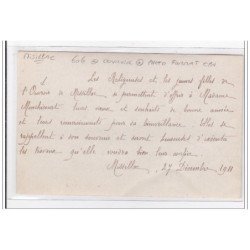 Les Religieuses et les jeunes filles de
l'Ouvroir de Massillon se permettent d'offrir à Madame
leurs vœux et souhaits de bonne année
et leurs remerciements pour sa bienveillance. Elles se
rappellent à son souvenir et seront heureuses d'exécuter
les travaux qu'elle voudra bien leur confier.
Massillon, 27 Décembre 1911